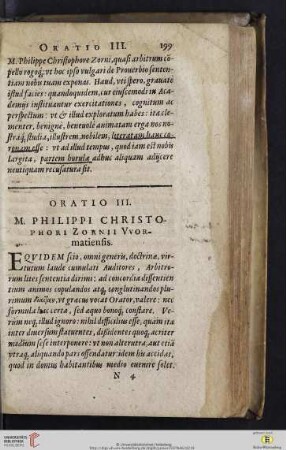 ORATIO III. 199
M. Philippe Christophore Zorni, quasi arbitrum cō-
pello rogoq́; vt hoc ipso vulgari de Proverbio senten-
tiam nobis tuam exponas. Haud, vti spero, gravate
istud facies: quandoquidem, cur eiuscemodi in Aca-
demijs instituantur exercitationes, cognitum ac
perspectum: vt & illud exploratum habes: ita cle-
menter, benignè, benevolè animatam erga nos no-
straq́; studia, illustrem, nobilem, literatam hanc co-
ronam esse: vt ad illud tempus, quod iam est nobis
largita, partem horulæ adhuc aliquam adijcere
neutiquam recusatura sit.
ORATIO III.
M. PHILIPPI CHRISTO-
PHORI ZORNII VVor-
matiensis.
EQVIDEM scio, omni generis, doctrinæ, vir-
tutum laude cumulati Auditores, Arbitro-
rum lites sententia dirimi: ad concordia dissentien-
tium animos copulandos atq́; conglutinandos plu-
rimum vt græci vocat Orator, valere: nec
formula hac certa, sed æquo bonoq́; constare. Ve-
rùm neq; illud ignoro: nihil difficilius esse, quàm ita
inter diversum statuentes, dissidentes quoq́; acriter
medium sese interponere: vt non alterutra, aut etiā
vtraq́; aliquando pars offendatur: idem his accidat,
quod in domus habitantibus medio evenire solet.
N 4